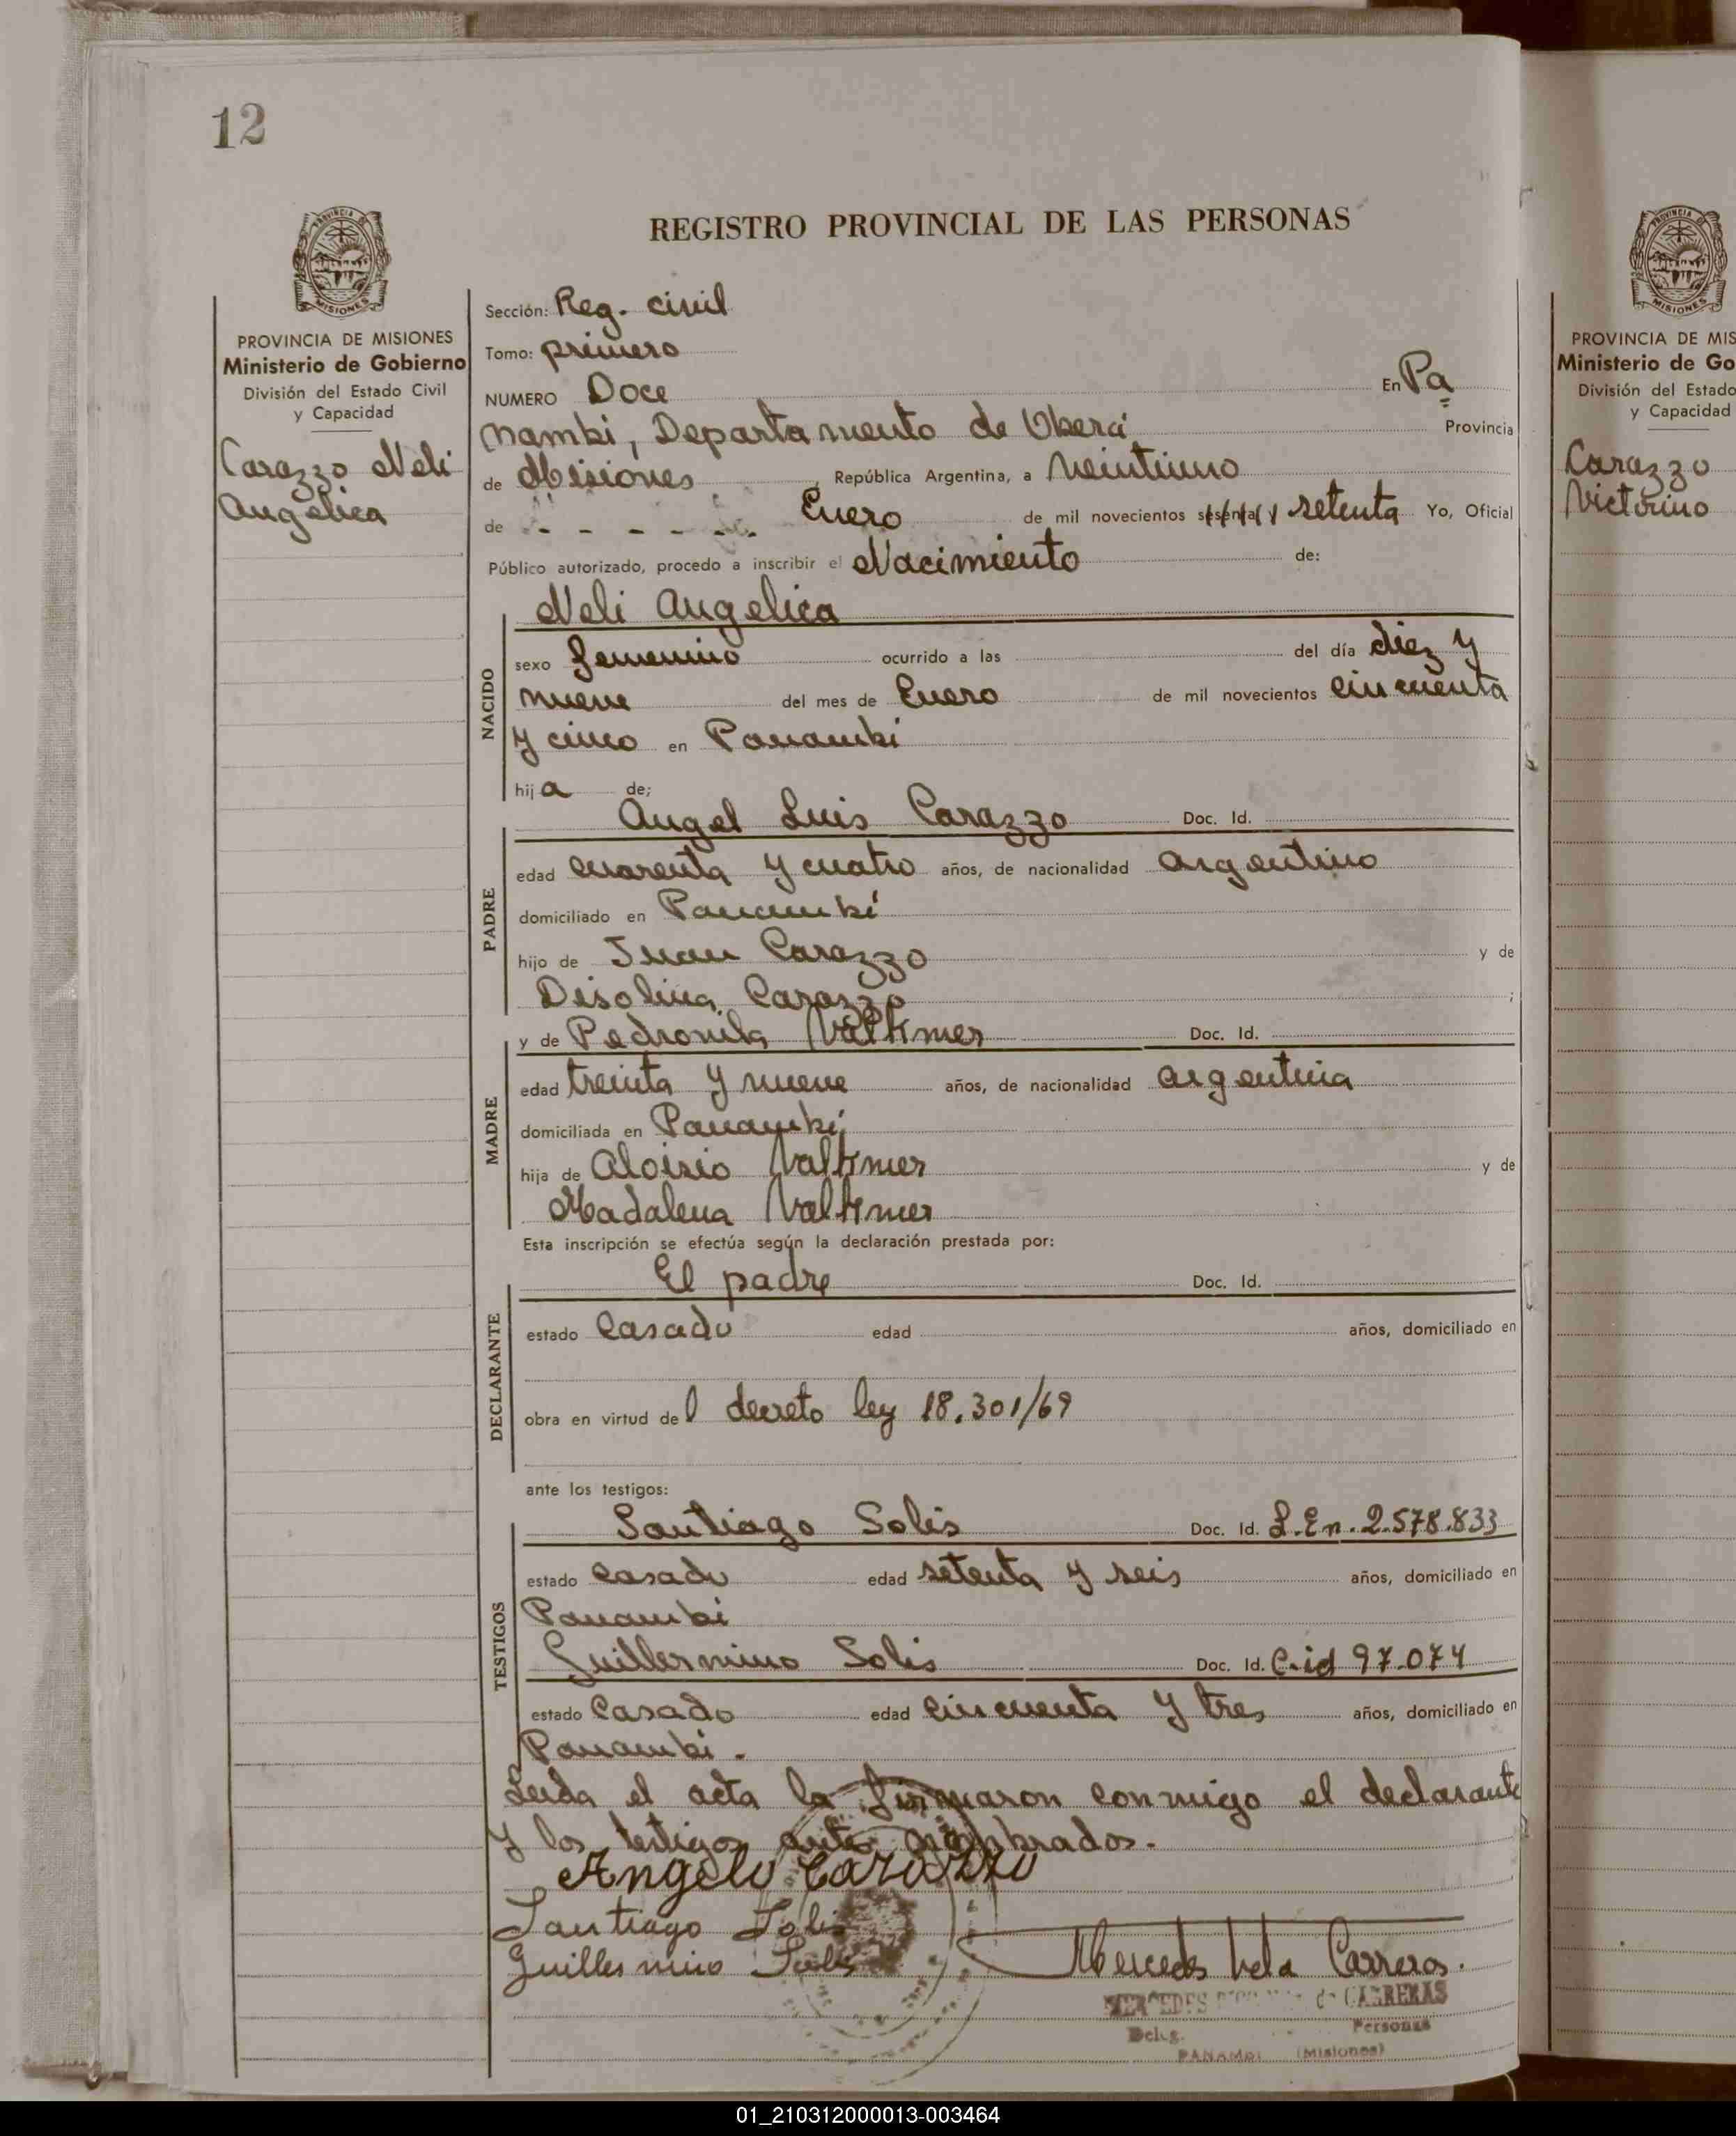 12
REGISTRO PROVINCIAL DE LAS PERSONAS
PROVINCIA DE MISIONES
Ministerio de Gobierno
División del Estado Civil
y Capacidad
Carazzo Neli
Angélica
Sección: Reg. civil
Tomo: primero
NUMERO Doce En Pa
nambi, Departamento de Oberá Provincia
de Misiones, República Argentina, a Veintiuno
de - - - - - Enero de mil novecientos sesenta y setenta Yo, Oficial
Público autorizado, procedo a inscribir el Nacimiento de:
Neli Angelica
NACIDO
sexo femenino ocurrido a las del día diez y
nueve del mes de Enero de mil novecientos cincuenta
y cinco en Panambi
hija de;
Angel Luis Carazzo Doc. Id.
PADRE
edad cuarenta y cuatro años, de nacionalidad argentino
domiciliado en Panambí
hijo de Juan Carazzo y de
Disolina Carazzo ;
y de Pedronila Doc. Id.
MADRE
edad treinta y nueve años, de nacionalidad argentina
domiciliada en Panambí
hija de Aloisio y de
Madalena
Esta inscripción se efectúa según la declaración prestada por:
El padre Doc. Id.
DECLARANTE
estado Casado edad años, domiciliado en
obra en virtud del decreto ley 18.301/69
ante los testigos:
TESTIGOS
Santiago Solis Doc. Id. L.En. 2.578.833
estado casado edad setenta y seis años, domiciliado en
Panambi
Guillermino Solis Doc. Id. C.id 97.074
estado Casado edad cincuenta y tres años, domiciliado en
Panambi.
Leida el acta la firmaron conmigo el declarante
y los testigos ante nombrados.-
Angelo Carazzo
Santiago Solis
Guillermino Solis
Mercedes Carreras.
MERCEDES de CARRERAS
Deleg. Personas
PANAMBI (Misiones)
PROVINCIA DE MIS
Ministerio de Go
División del Estado
y Capacidad
Carazzo
Victorino
01_210312000013-003464